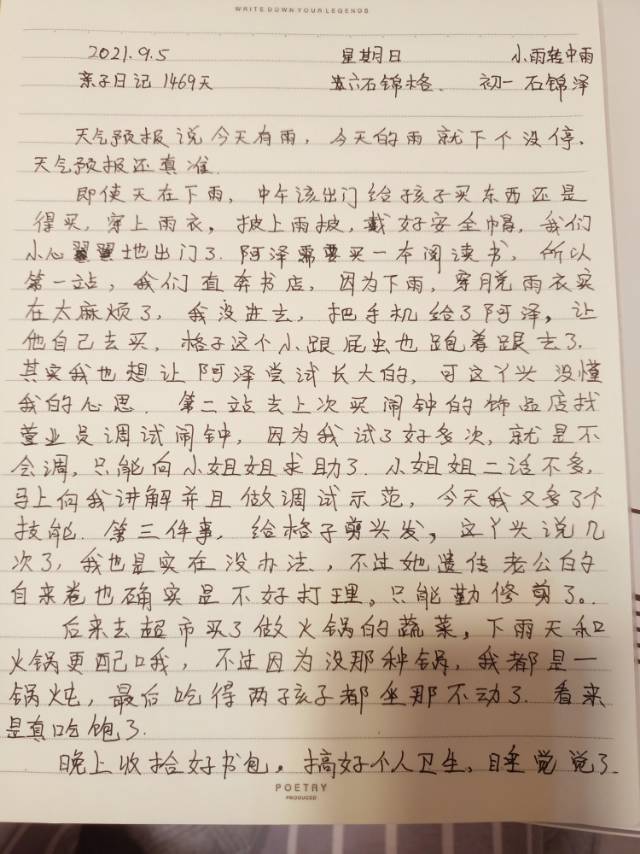 WRITE DOWN YOUR LEGENDS
2021.9.5 星期日 小雨转中雨
亲子日记1469天 六石锦格. 初一石锦泽
天气预报说今天有雨，今天的雨就下个没停，
天气预报还真准.
即使天在下雨，中午该出门给孩子买东西还是
得买，穿上雨衣，披上雨披，戴好安全帽，我们
小心翼翼地出门了.阿泽需要买一本阅读书，所以
第一站，我们直奔书店，因为下雨，穿脱雨衣实
在太麻烦了，我没进去，把手机给了阿泽，让
他自己去买，格子这个小跟屁虫也跑着跟去了.
其实我也想让阿泽尝试长大的，可这丫头没懂
我的心思.第二站去上次买闹钟的饰品店找
营业员调试闹钟，因为我试了好多次，就是不
会调，只能向小姐姐求助了.小姐姐二话不多，
马上向我讲解并且做调试示范，今天我又多了个
技能.第三件事，给格子剪头发，这丫头说几
次了，我也是实在没办法，不过她遗传老公的
自来卷也确实是不好打理，只能勤修剪了。.
后来去超市买了做火锅的蔬菜，下雨天和
火锅更配哦，不过因为没那种锅，我都是一
锅炖，最后吃得两孩子都坐那不动了.看来
是真吃饱了.
晚上收拾好书包，搞好个人卫生、睡觉觉了.
POETRY
PRODUCED